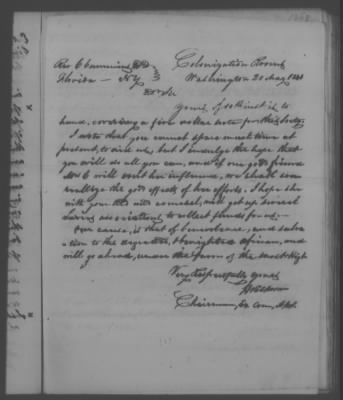 Rev C Cummins DD
Florida — NY
Colonization Rooms
Washington 20 May 1841
Dr Sir
Yours of 10th inst is to
hand, covering a five dollar note for this Socy.
I note that you cannot spare much time at
present, to aid us, but I indulge the hope that
you will do all you can, and if our good friend
Mrs C will lend her influence, we shall soon
realize the good effects of her efforts. I hope she
with you will aid counsel, and get up several
Sewing associations to collect funds for us.
Our cause, is that of benevolence, and salva
tion to the degraded, & benighted African, and
will go ahead, under the favor of the Most High
Very Respectfully yours
Chairman, Ex Com, A